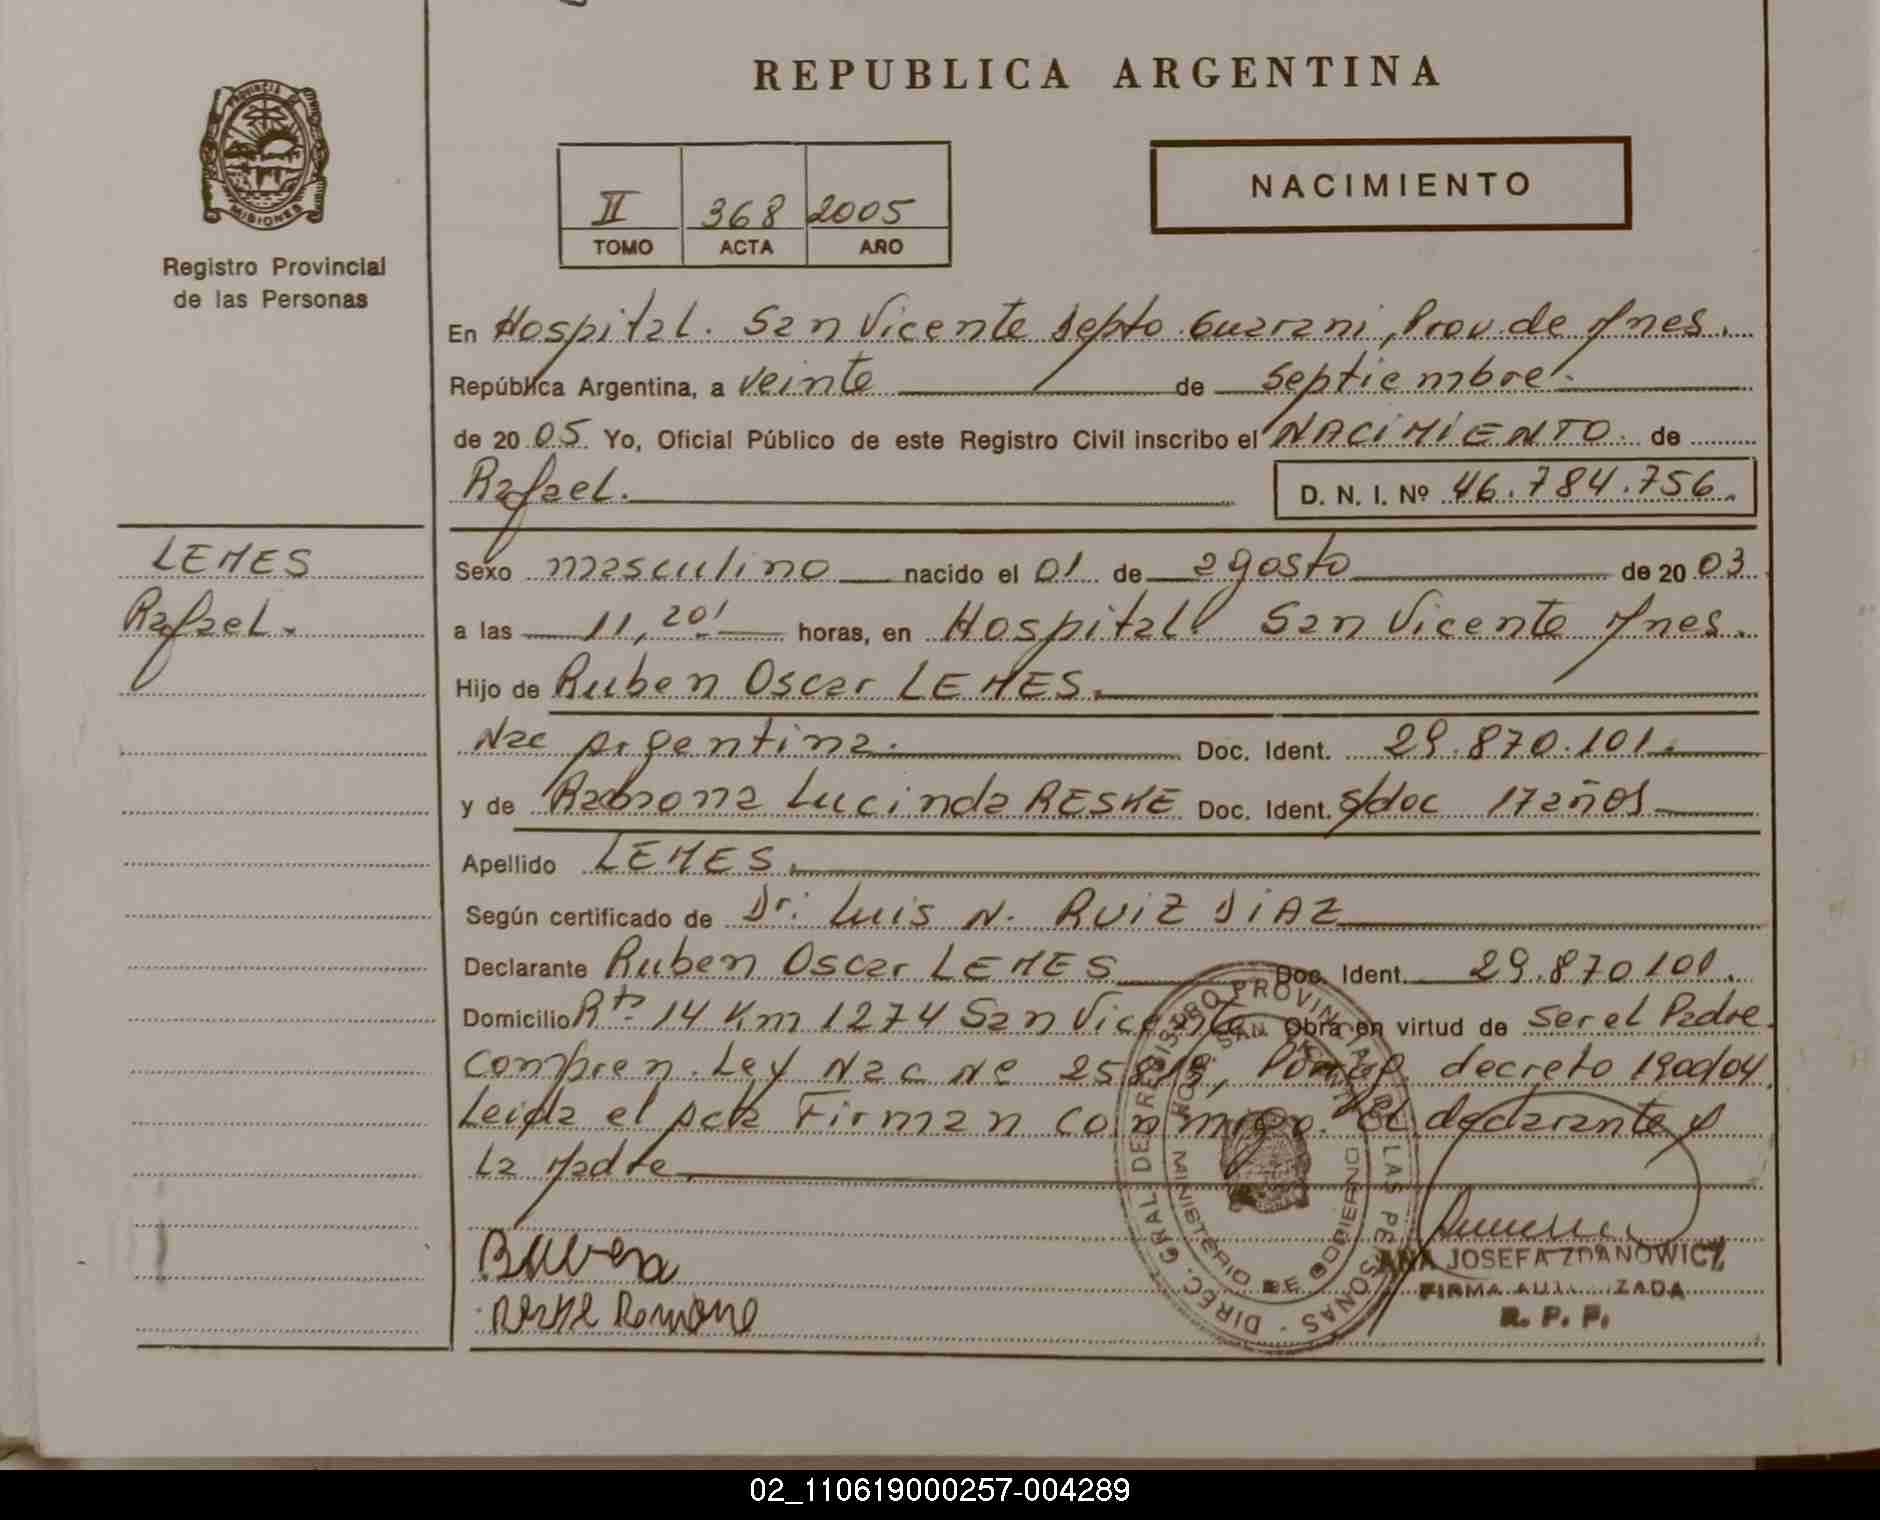 REPUBLICA ARGENTINA
PROVINCIA DE
MISIONES
Registro Provincial
de las Personas
II 368 2005
TOMO ACTA AÑO
NACIMIENTO
En Hospital. San Vicente Depto. Guarani, Prov. de Mnes.
República Argentina, a veinte de Septiembre
de 2005 Yo, Oficial Público de este Registro Civil inscribo el NACIMIENTO de
Rafael. D. N. I. Nº 46.784.756.
LEMES
Rafael.
Sexo masculino nacido el 01 de agosto de 2003
a las 11,20' horas, en Hospital San Vicente Mnes.
Hijo de Ruben Oscar LEMES.
Nac Argentina. Doc. Ident. 29.870.101.
y de Ramona Lucinda RESKE Doc. Ident. s/doc 17 años
Apellido LEMES.
Según certificado de Dr. Luis N. RUIZ DIAZ
Declarante Ruben Oscar LEMES Doc. Ident. 29.870101.
Domicilio Rta 14 Km 1274 San Vicente Obra en virtud de ser el Padre.
Compren. Ley Nac Nº decreto 1900/04.
Leida el Acta Firman conmigo El declarante y
La Madre
Reske Romono
DIREC. GRAL DE REGISTRO PROVINCIAL DE LAS PERSONAS
MINISTERIO DE GOBIERNO
ANA JOSEFA ZDANOWICZ
FIRMA AUTORIZADA
R. P. P.
02_110619000257-004289